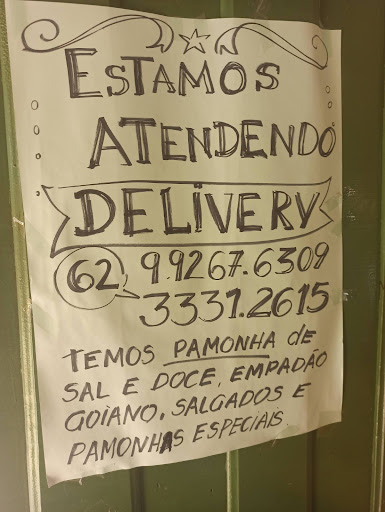 ESTAMOS
ATENDENDO
DELIVERY
62 9.9267.6309
3331.2615
TEMOS PAMONHA de
SAL E DOCE, EMPADÃO
GOIANO, SALGADOS E
PAMONHAS ESPECIAIS.